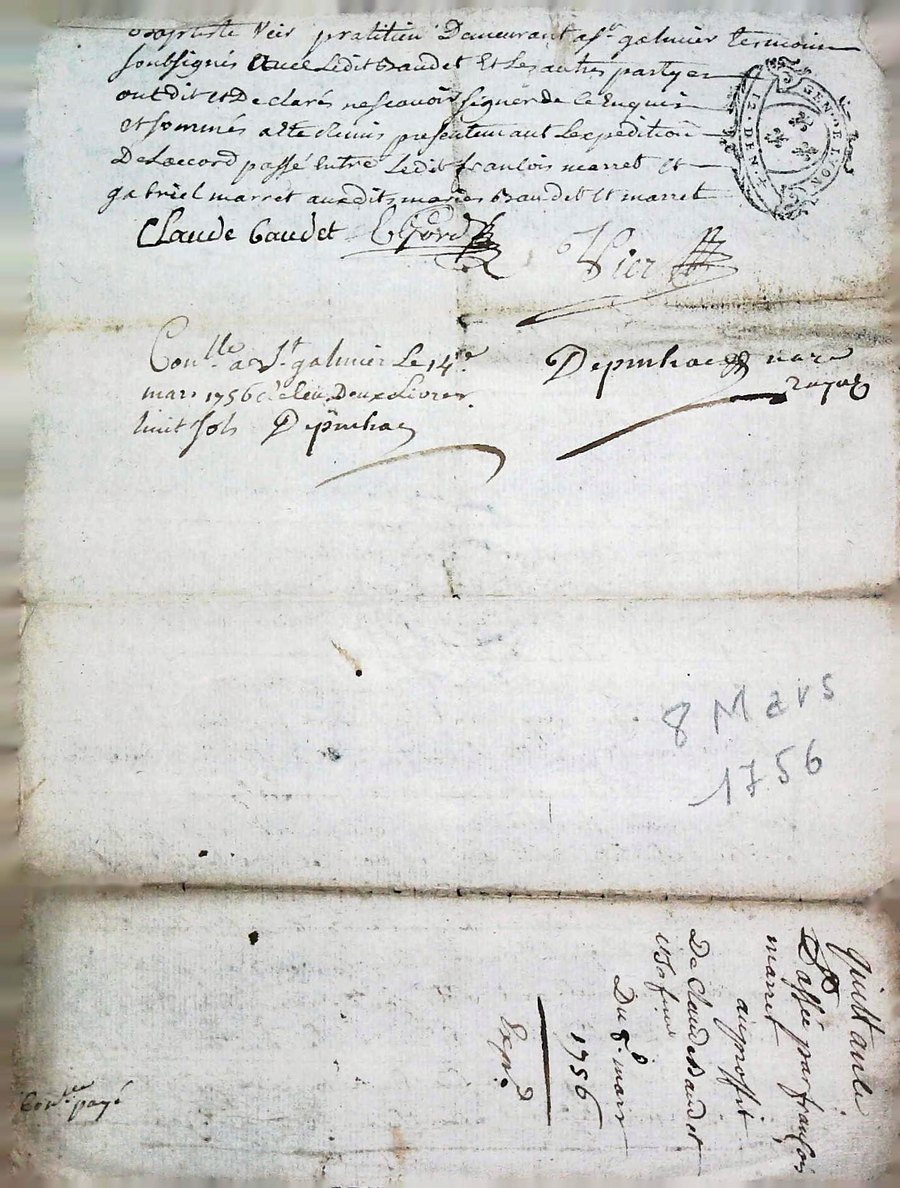 baptiste Vier pratitien Demeurant a st galmier tesmoins
soubsignés Avec Ledit Baudet Et Les autres partyes
ont dit et Declarés ne scavoir signer de ce Enquis
et sommés acte demis presentemant Lexpedition
De Laccord passé Entre Ledit francois marret et
gabriel marret auxdits mariés Baudet et marret
GEN. DE LYON
12. DEN.
Claude baudet
Vier
Conlle a St galmier Le 14e
mars 1756 Deux Livres
huit sols Depinhac
Depinhac
8 Mars
1756
quittance
passée par francois
marret
au proffit
De Claude Baudet
et sa fme
Du 8e mars
1756
Expd
Conlle payé